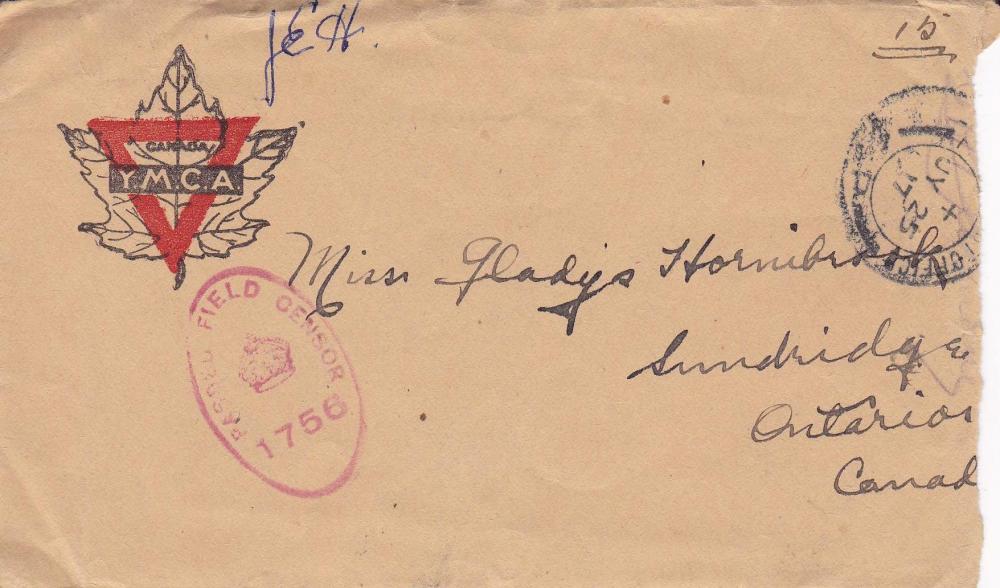 JEH.
15
CANADA
YMCA
PASSED FIELD CENSOR
1756
Miss Gladys Hornibrook
Sundridge
Ontario
Canad
JY X
17 25